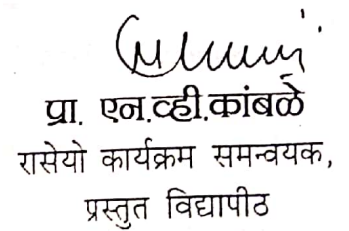 प्रा. एन.व्ही.कांबळे
रासेयो कार्यक्रम समन्वयक,
प्रस्तुत विद्यापीठ